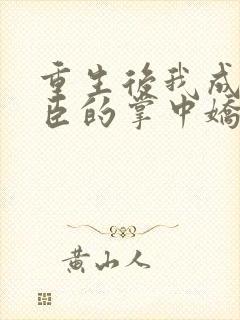 重生後我成
臣的掌中嬌
黃山人